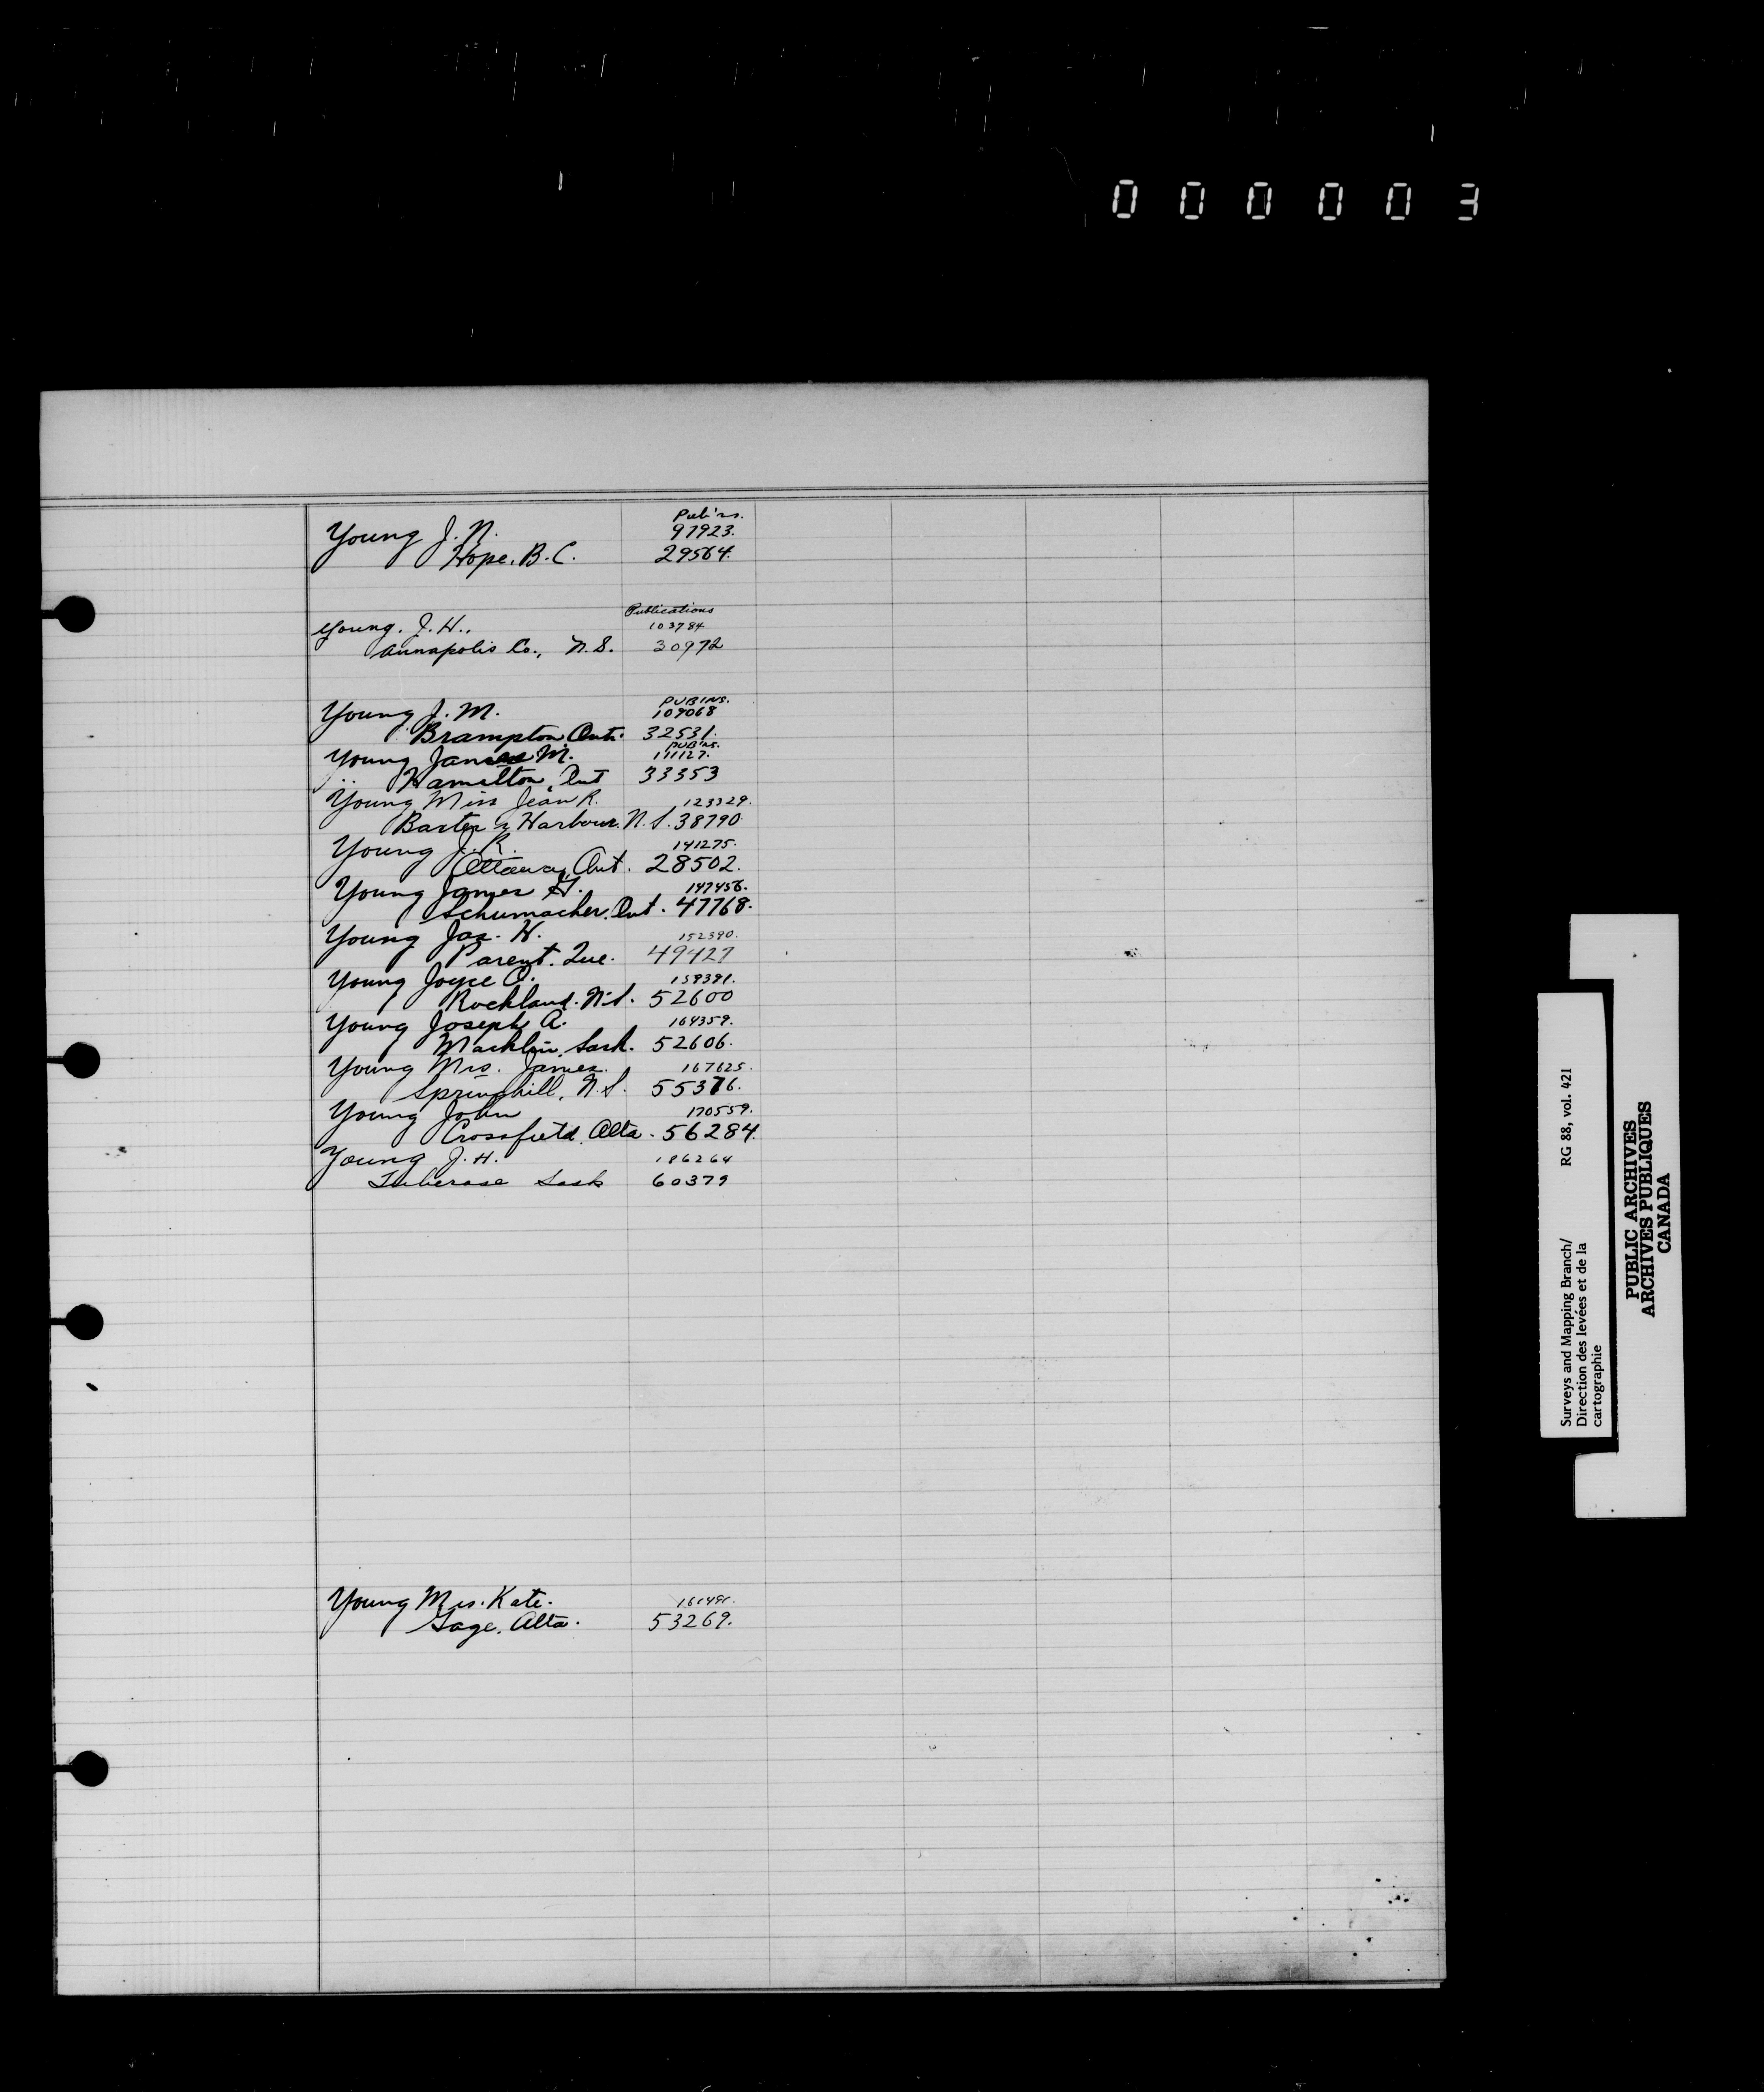 000003
Pub'ns.
Young J. N. 97923.
Hope. B.C. 29564.
Publications
Young. J. H., 103784
Annapolis Co., N.S. 30972
PUB'NS.
Young J. M. 109068
Brampton Ont. 32531.
PUB'NS.
Young James M. 111127.
Hamilton, Ont 33353
Young Miss Jean R. 123329.
Harbour. N.S. 38790
Young J. R. 141275.
Ottawa, Ont. 28502.
Young James H. 147456.
Schumacher. Ont. 47768.
Young Jas. H. 152390.
Parent. Que. 49427
Young Joyce O. 159391.
Rockland. N.S. 52600
Young Joseph A. 164359.
Macklin, Sask. 52606.
Young Mrs. James. 167625.
Springhill, N.S. 55376.
Young John 170559.
Crossfield. Alta. 56284.
Young J. H. 186264
Tuberose Sask 60379
Young Mrs. Kate.
Gage. Alta. 53269.
Surveys and Mapping Branch/ RG 88, vol. 421
Direction des levées et de la
cartographie
PUBLIC ARCHIVES
ARCHIVES PUBLIQUES
CANADA